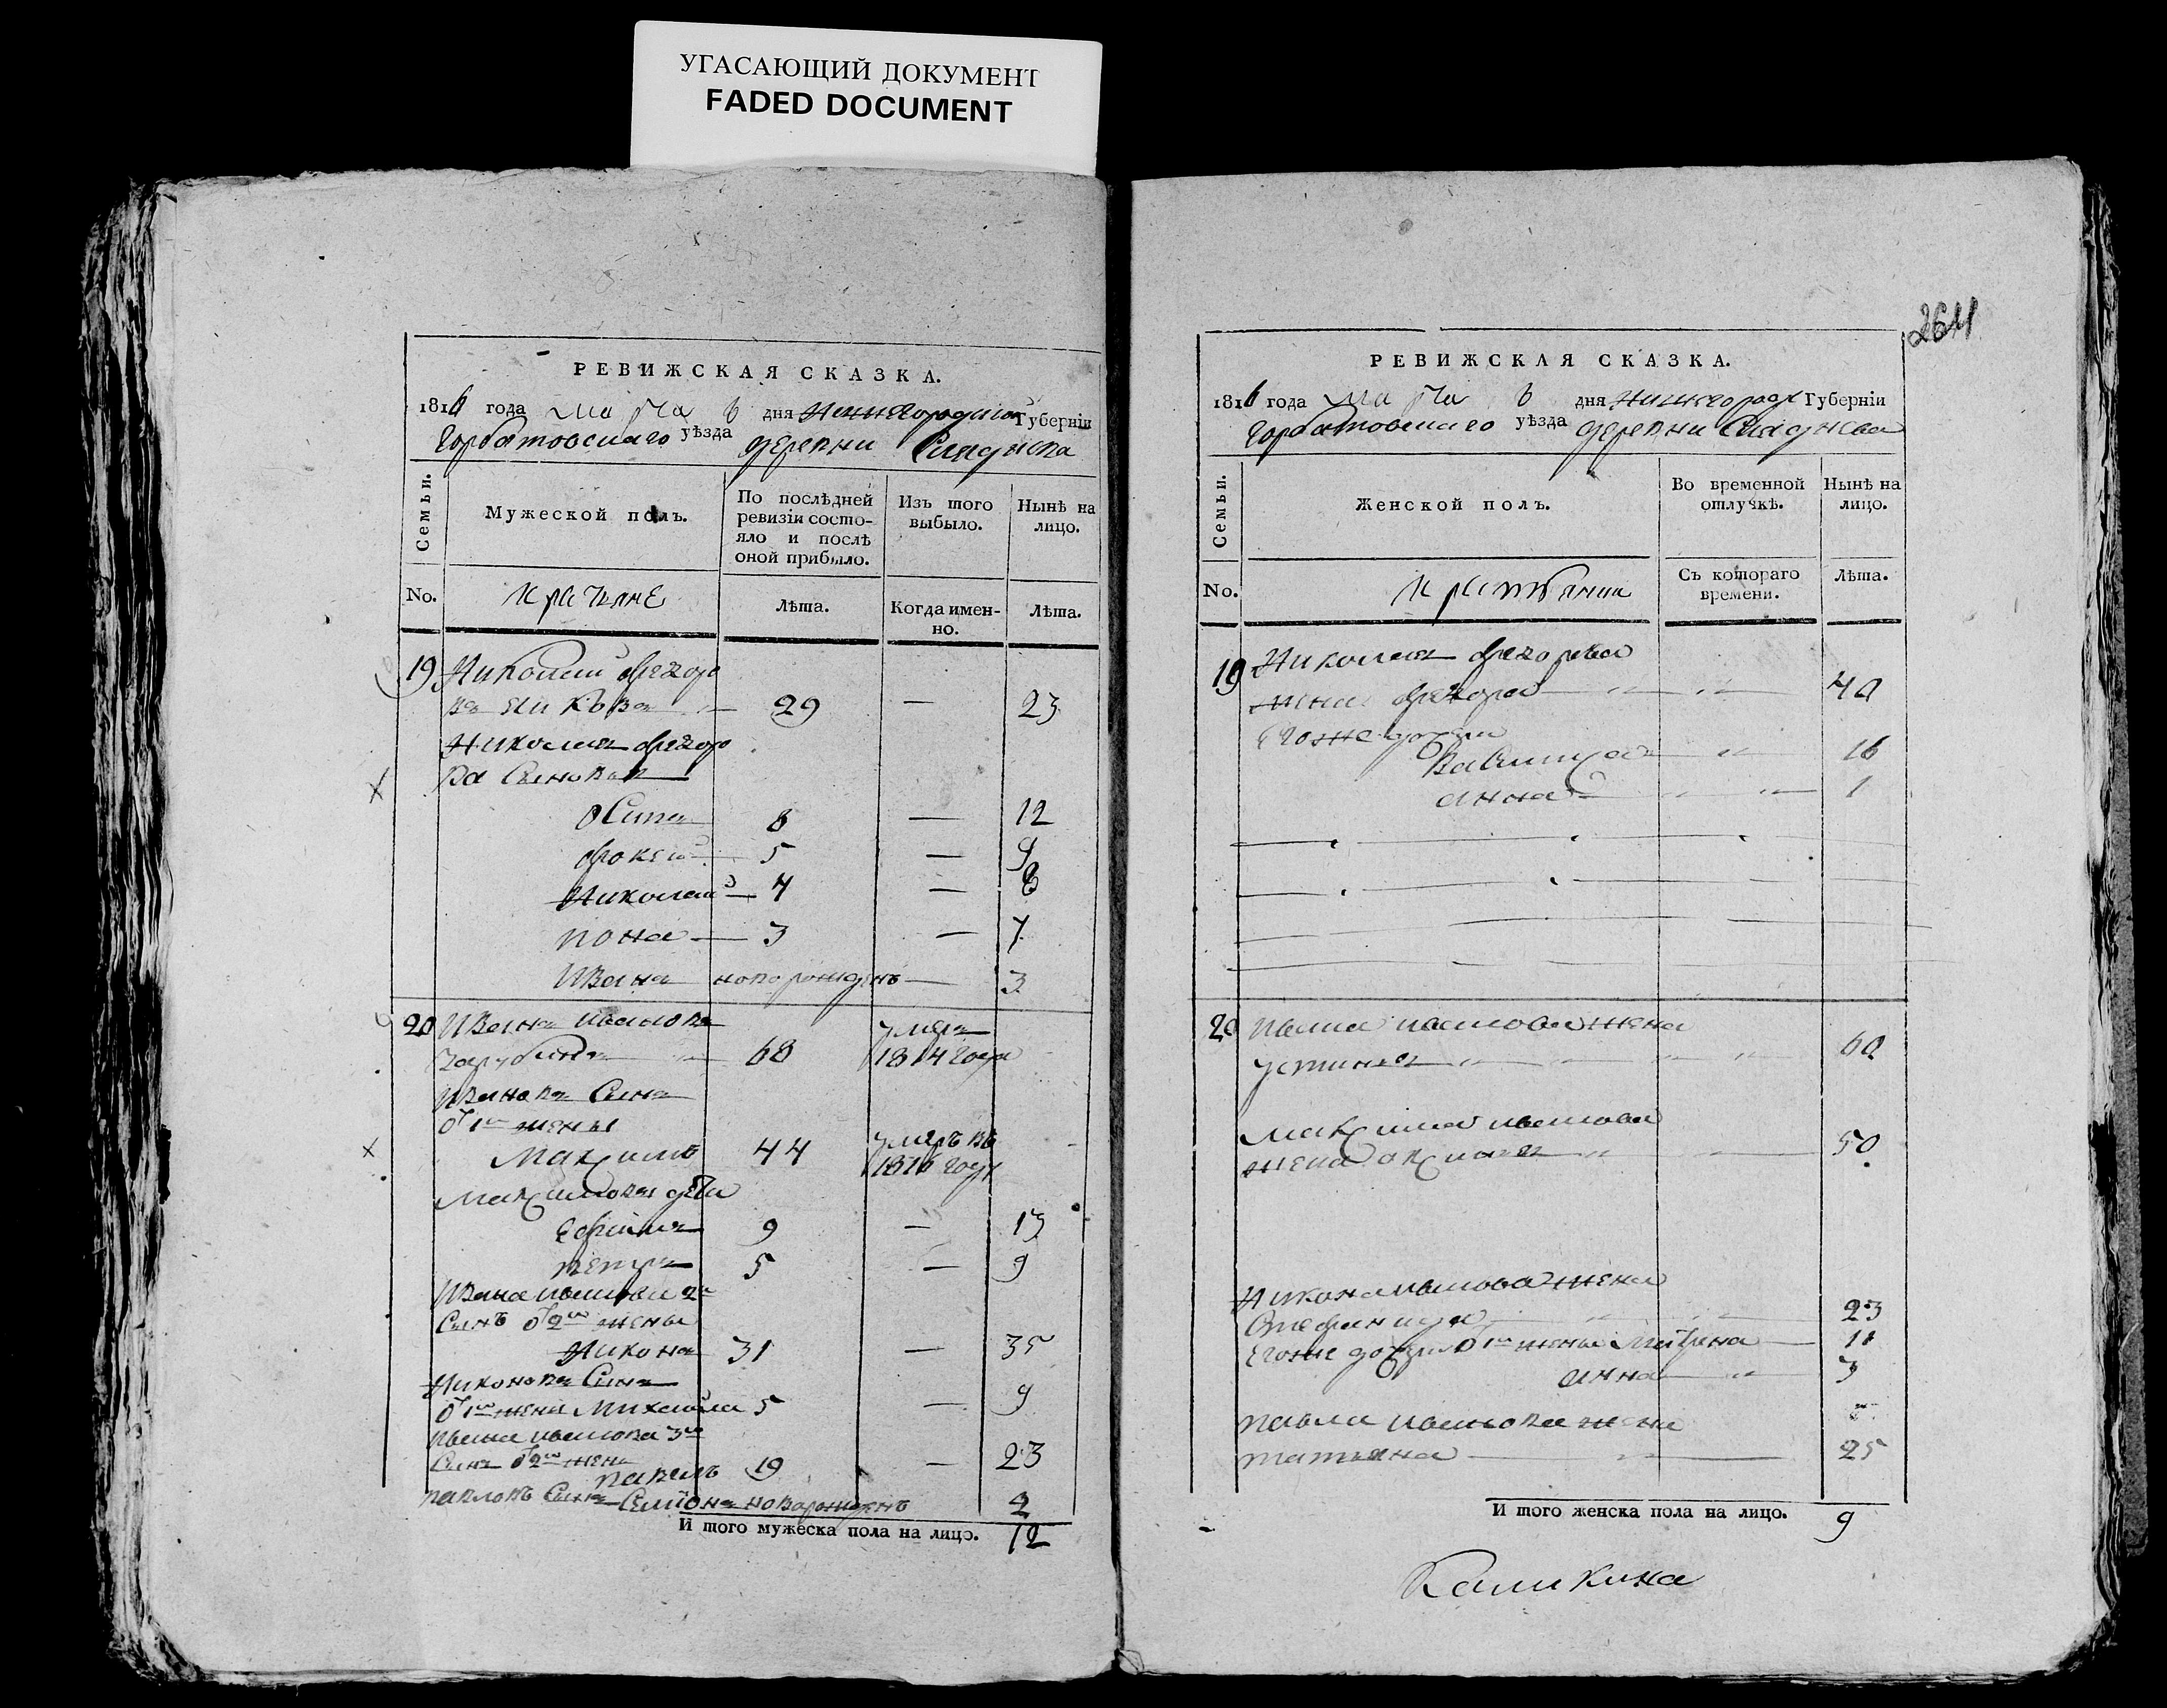 УГАСАЮЩИЙ ДОКУМЕНТ
FADED DOCUMENT
РЕВИЖСКАЯ СКАЗКА.
1816 года марта 6 дня Нижегородской Губерніи
Горбатовскаго уѣзда деревни
Семьи.
Мужеской полъ.
По послѣдней ревизіи состо-
яло и послѣ
оной прибыло.
Изъ того
выбыло.
Нынѣ на
лицо.
No.
Лѣта.
Когда имен-
но.
Лѣта.
19 Николай
29 — 23
Николая
ва Сыновья
Осипъ 8 — 12
фокей 5 — 9
Николай 4 — 8
3 — 7
Иванъ новорожденъ — 3
20 Иванъ Ивановъ умеръ
68 1814 года
Ивановъ Сынъ
от 1й жены
Максимъ 44 умеръ въ
1816 году
Максимовы дети
Ефимъ 9 — 13
петръ 5 — 9
Ивана Иванова 2й
Сынъ от 2й жены
Никонъ 31 — 35
Никоновъ Сынъ
от 1й жены Михайла 5 — 9
Ивана Иванова 3й
Сынъ от 2й жены
павелъ 19 — 23
павловъ Сынъ Семионъ новорожденъ 2
И того мужеска пола на лицо. 12
2641
РЕВИЖСКАЯ СКАЗКА.
1816 года марта 6 дня Нижегородск Губерніи
Горбатовскаго уѣзда деревни
Семьи.
Женской полъ.
Во временной
отлучкѣ.
Нынѣ на
лицо.
No.
Съ котораго
времени.
Лѣта.
19 Николая
жена 40
Егоже дочери
Василиса 16
анна 1
20 Ивана Иванова жена
устинья 60
Максима Иванова
жена 50
Никона Иванова жена
Стефанида 23
Егоже дочери от 1й жены Матрена 11
анна 3
павла Иванова жена
татьяна 25
И того женска пола на лицо. 9